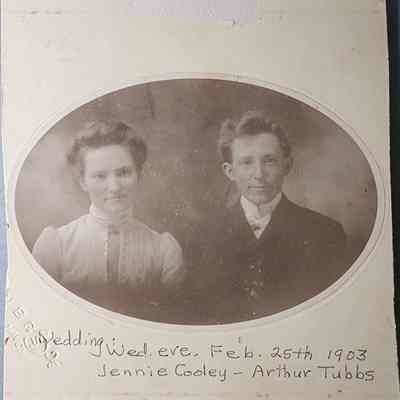 Wedding: Wed. eve. Feb. 25th 1903
Jennie Cooley - Arthur Tubbs